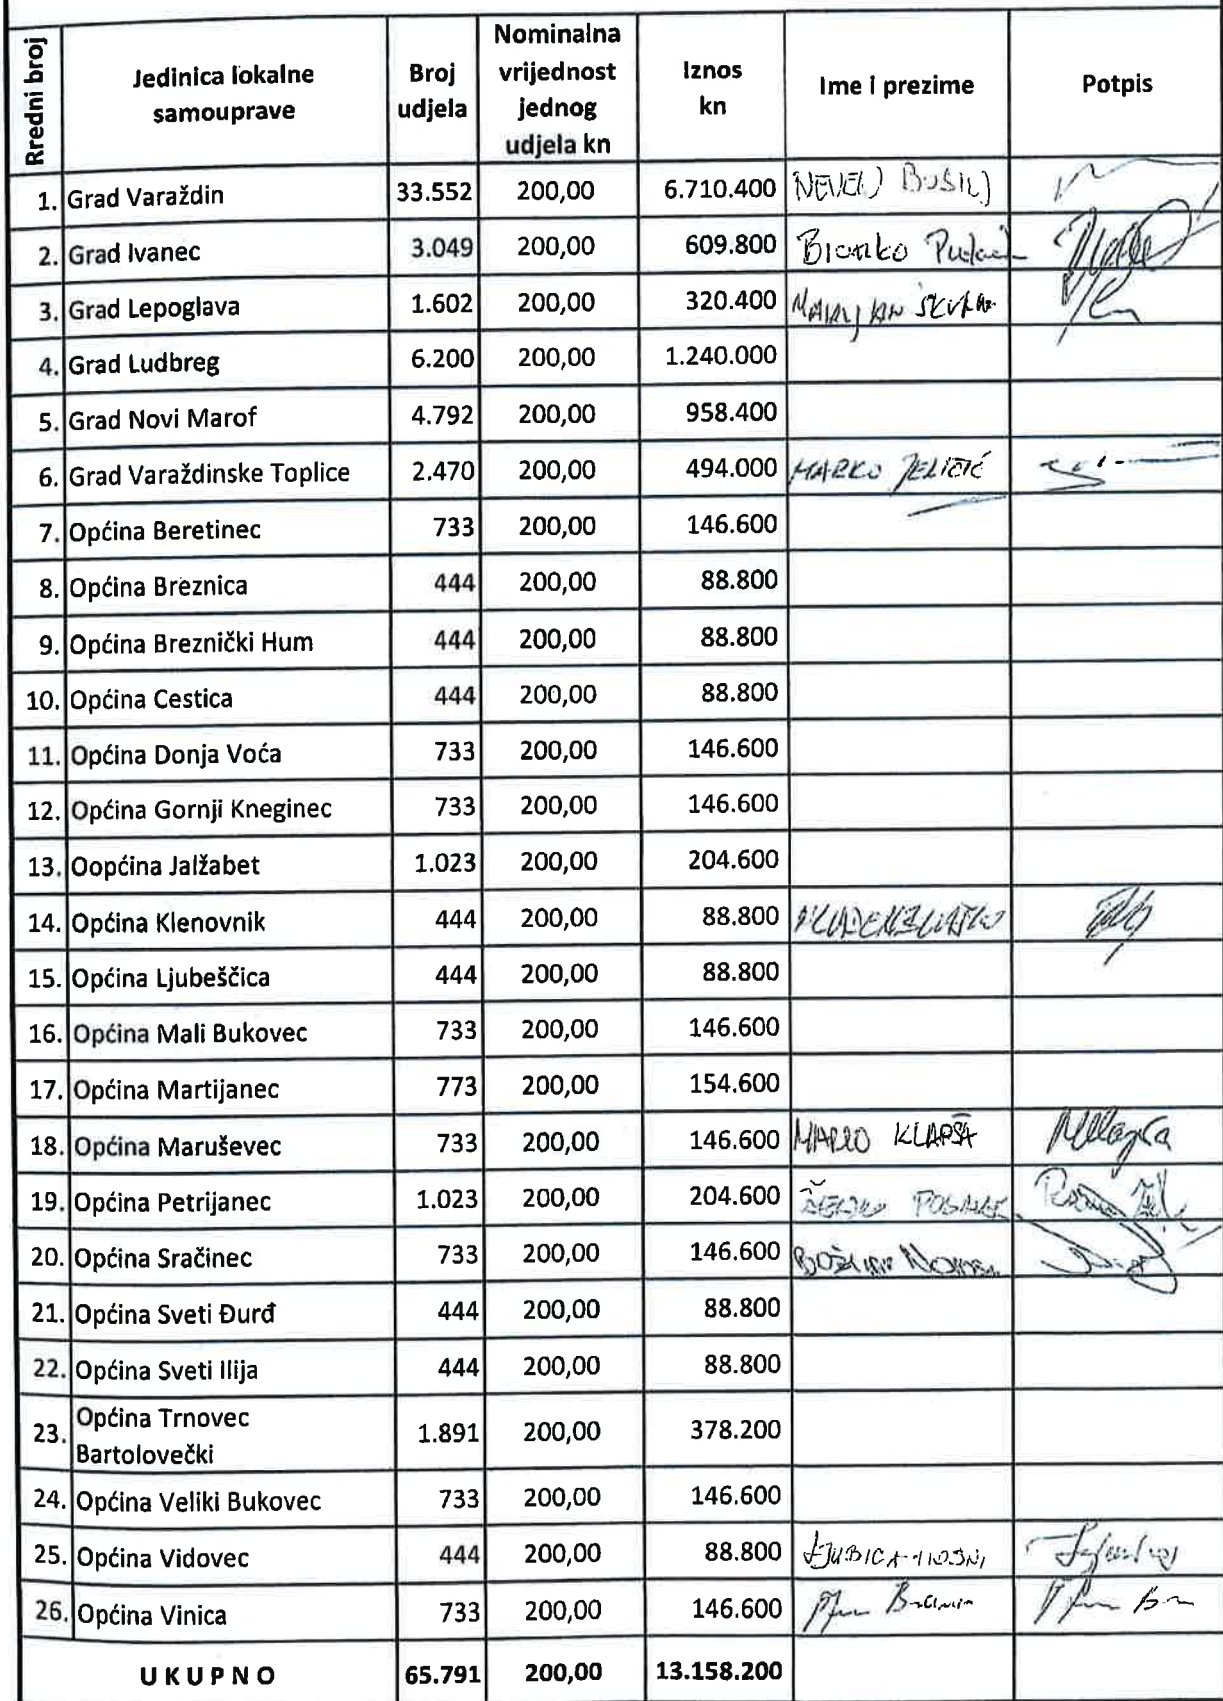 Rredni broj | Jedinica lokalne samouprave | Broj udjela | Nominalna vrijednost jednog udjela kn | Iznos kn | Ime i prezime | Potpis
1. Grad Varaždin 33.552 200,00 6.710.400
2. Grad Ivanec 3.049 200,00 609.800
3. Grad Lepoglava 1.602 200,00 320.400
4. Grad Ludbreg 6.200 200,00 1.240.000
5. Grad Novi Marof 4.792 200,00 958.400
6. Grad Varaždinske Toplice 2.470 200,00 494.000 MARKO
7. Općina Beretinec 733 200,00 146.600
8. Općina Breznica 444 200,00 88.800
9. Općina Breznički Hum 444 200,00 88.800
10. Općina Cestica 444 200,00 88.800
11. Općina Donja Voća 733 200,00 146.600
12. Općina Gornji Kneginec 733 200,00 146.600
13. Oopćina Jalžabet 1.023 200,00 204.600
14. Općina Klenovnik 444 200,00 88.800
15. Općina Ljubeščica 444 200,00 88.800
16. Općina Mali Bukovec 733 200,00 146.600
17. Općina Martijanec 773 200,00 154.600
18. Općina Maruševec 733 200,00 146.600 MARIO KLAPŠA
19. Općina Petrijanec 1.023 200,00 204.600
20. Općina Sračinec 733 200,00 146.600
21. Općina Sveti Đurđ 444 200,00 88.800
22. Općina Sveti Ilija 444 200,00 88.800
23. Općina Trnovec Bartolovečki 1.891 200,00 378.200
24. Općina Veliki Bukovec 733 200,00 146.600
25. Općina Vidovec 444 200,00 88.800 LJUBICA
26. Općina Vinica 733 200,00 146.600
UKUPNO 65.791 200,00 13.158.200